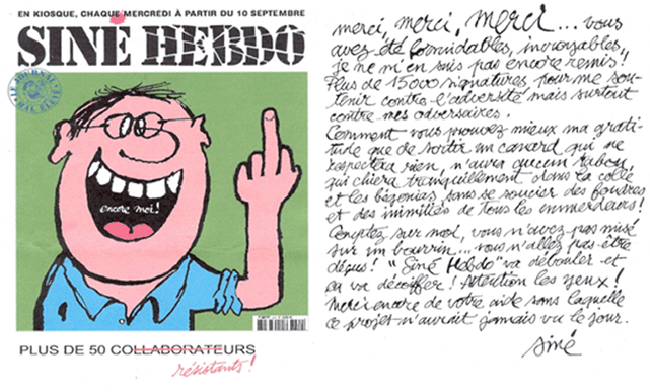 EN KIOSQUE, CHAQUE MERCREDI À PARTIR DU 10 SEPTEMBRE
SINÉ HEBDO
LE JOURNAL
MAL ÉLEVÉ
encore moi !
PLUS DE 50 COLLABORATEURS
résistants !
merci, merci, merci... vous
avez été formidables, incroyables,
je ne m'en suis pas encore remis !
Plus de 15000 signatures pour me sou-
tenir contre l'adversité mais surtout
contre mes adversaires.
Comment vous prouver mieux ma grati-
tude que de sortir un canard qui ne
respectera rien, n'aura aucun tabou,
qui chiera tranquillement dans la colle
et les bégonias sans se soucier des foudres
et des inimitiés de tous les emmerdeurs !
Comptez sur moi, vous n'avez pas misé
sur un bourrin... vous n'allez pas être
déçus ! "Siné Hebdo" va débouler et
ça va décoiffer ! Attention les yeux !
Merci encore de votre aide sans laquelle
ce projet n'aurait jamais vu le jour.
Siné